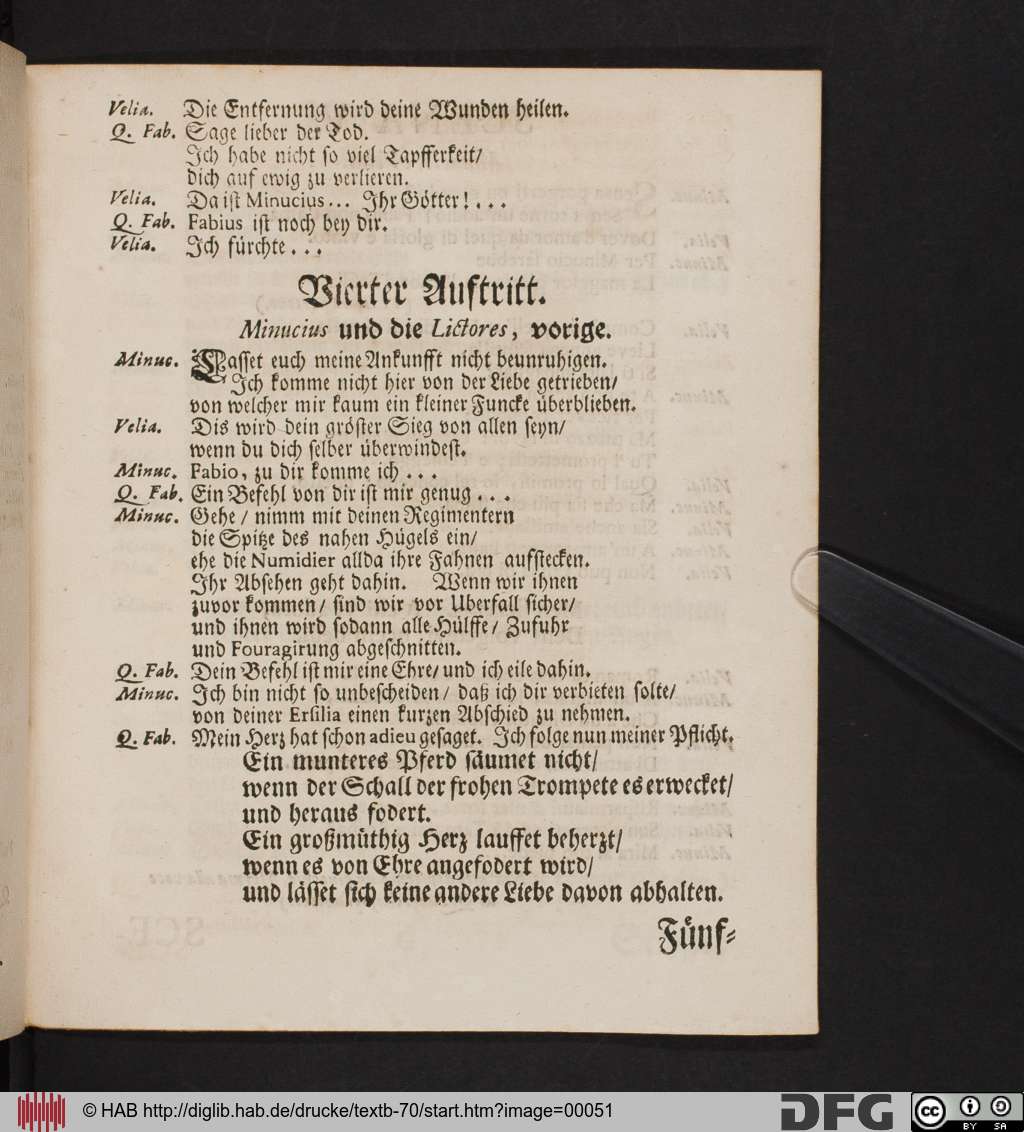 Velia. Die Entfernung wird deine Wunden heilen.
Q. Fab. Sage lieber der Tod.
Ich habe nicht so viel Tapfferkeit/
dich auf ewig zu verlieren.
Velia. Da ist Minucius... Ihr Götter!...
Q. Fab. Fabius ist noch bey dir.
Velia. Ich fürchte...
Vierter Auftritt.
Minucius und die Lictores, vorige.
Minuc. Lasset euch meine Ankunfft nicht beunruhigen.
Ich komme nicht hier von der Liebe getrieben/
von welcher mir kaum ein kleiner Funcke überblieben.
Velia. Dis wird dein gröster Sieg von allen seyn/
wenn du dich selber überwindest.
Minuc. Fabio, zu dir komme ich...
Q. Fab. Ein Befehl von dir ist mir genug...
Minuc. Gehe/ nimm mit deinen Regimentern
die Spitze des nahen Hügels ein/
ehe die Numidier allda ihre Fahnen aufstecken.
Ihr Absehen geht dahin. Wenn wir ihnen
zuvor kommen/ sind wir vor Uberfall sicher/
und ihnen wird sodann alle Hülffe/ Zufuhr
und Fouragirung abgeschnitten.
Q. Fab. Dein Befehl ist mir eine Ehre/ und ich eile dahin.
Minuc. Ich bin nicht so unbescheiden/ daß ich dir verbieten solte/
von deiner Ersilia einen kurzen Abschied zu nehmen.
Q. Fab. Mein Herz hat schon adieu gesaget. Ich folge nun meiner Pflicht.
Ein munteres Pferd säumet nicht/
wenn der Schall der frohen Trompete es erwecket/
und heraus fodert.
Ein großmüthig Herz lauffet beherzt/
wenn es von Ehre angefodert wird/
und lässet sich keine andere Liebe davon abhalten.
Fünf-
© HAB http://diglib.hab.de/drucke/textb-70/start.htm?image=00051
DFG
cc BY SA